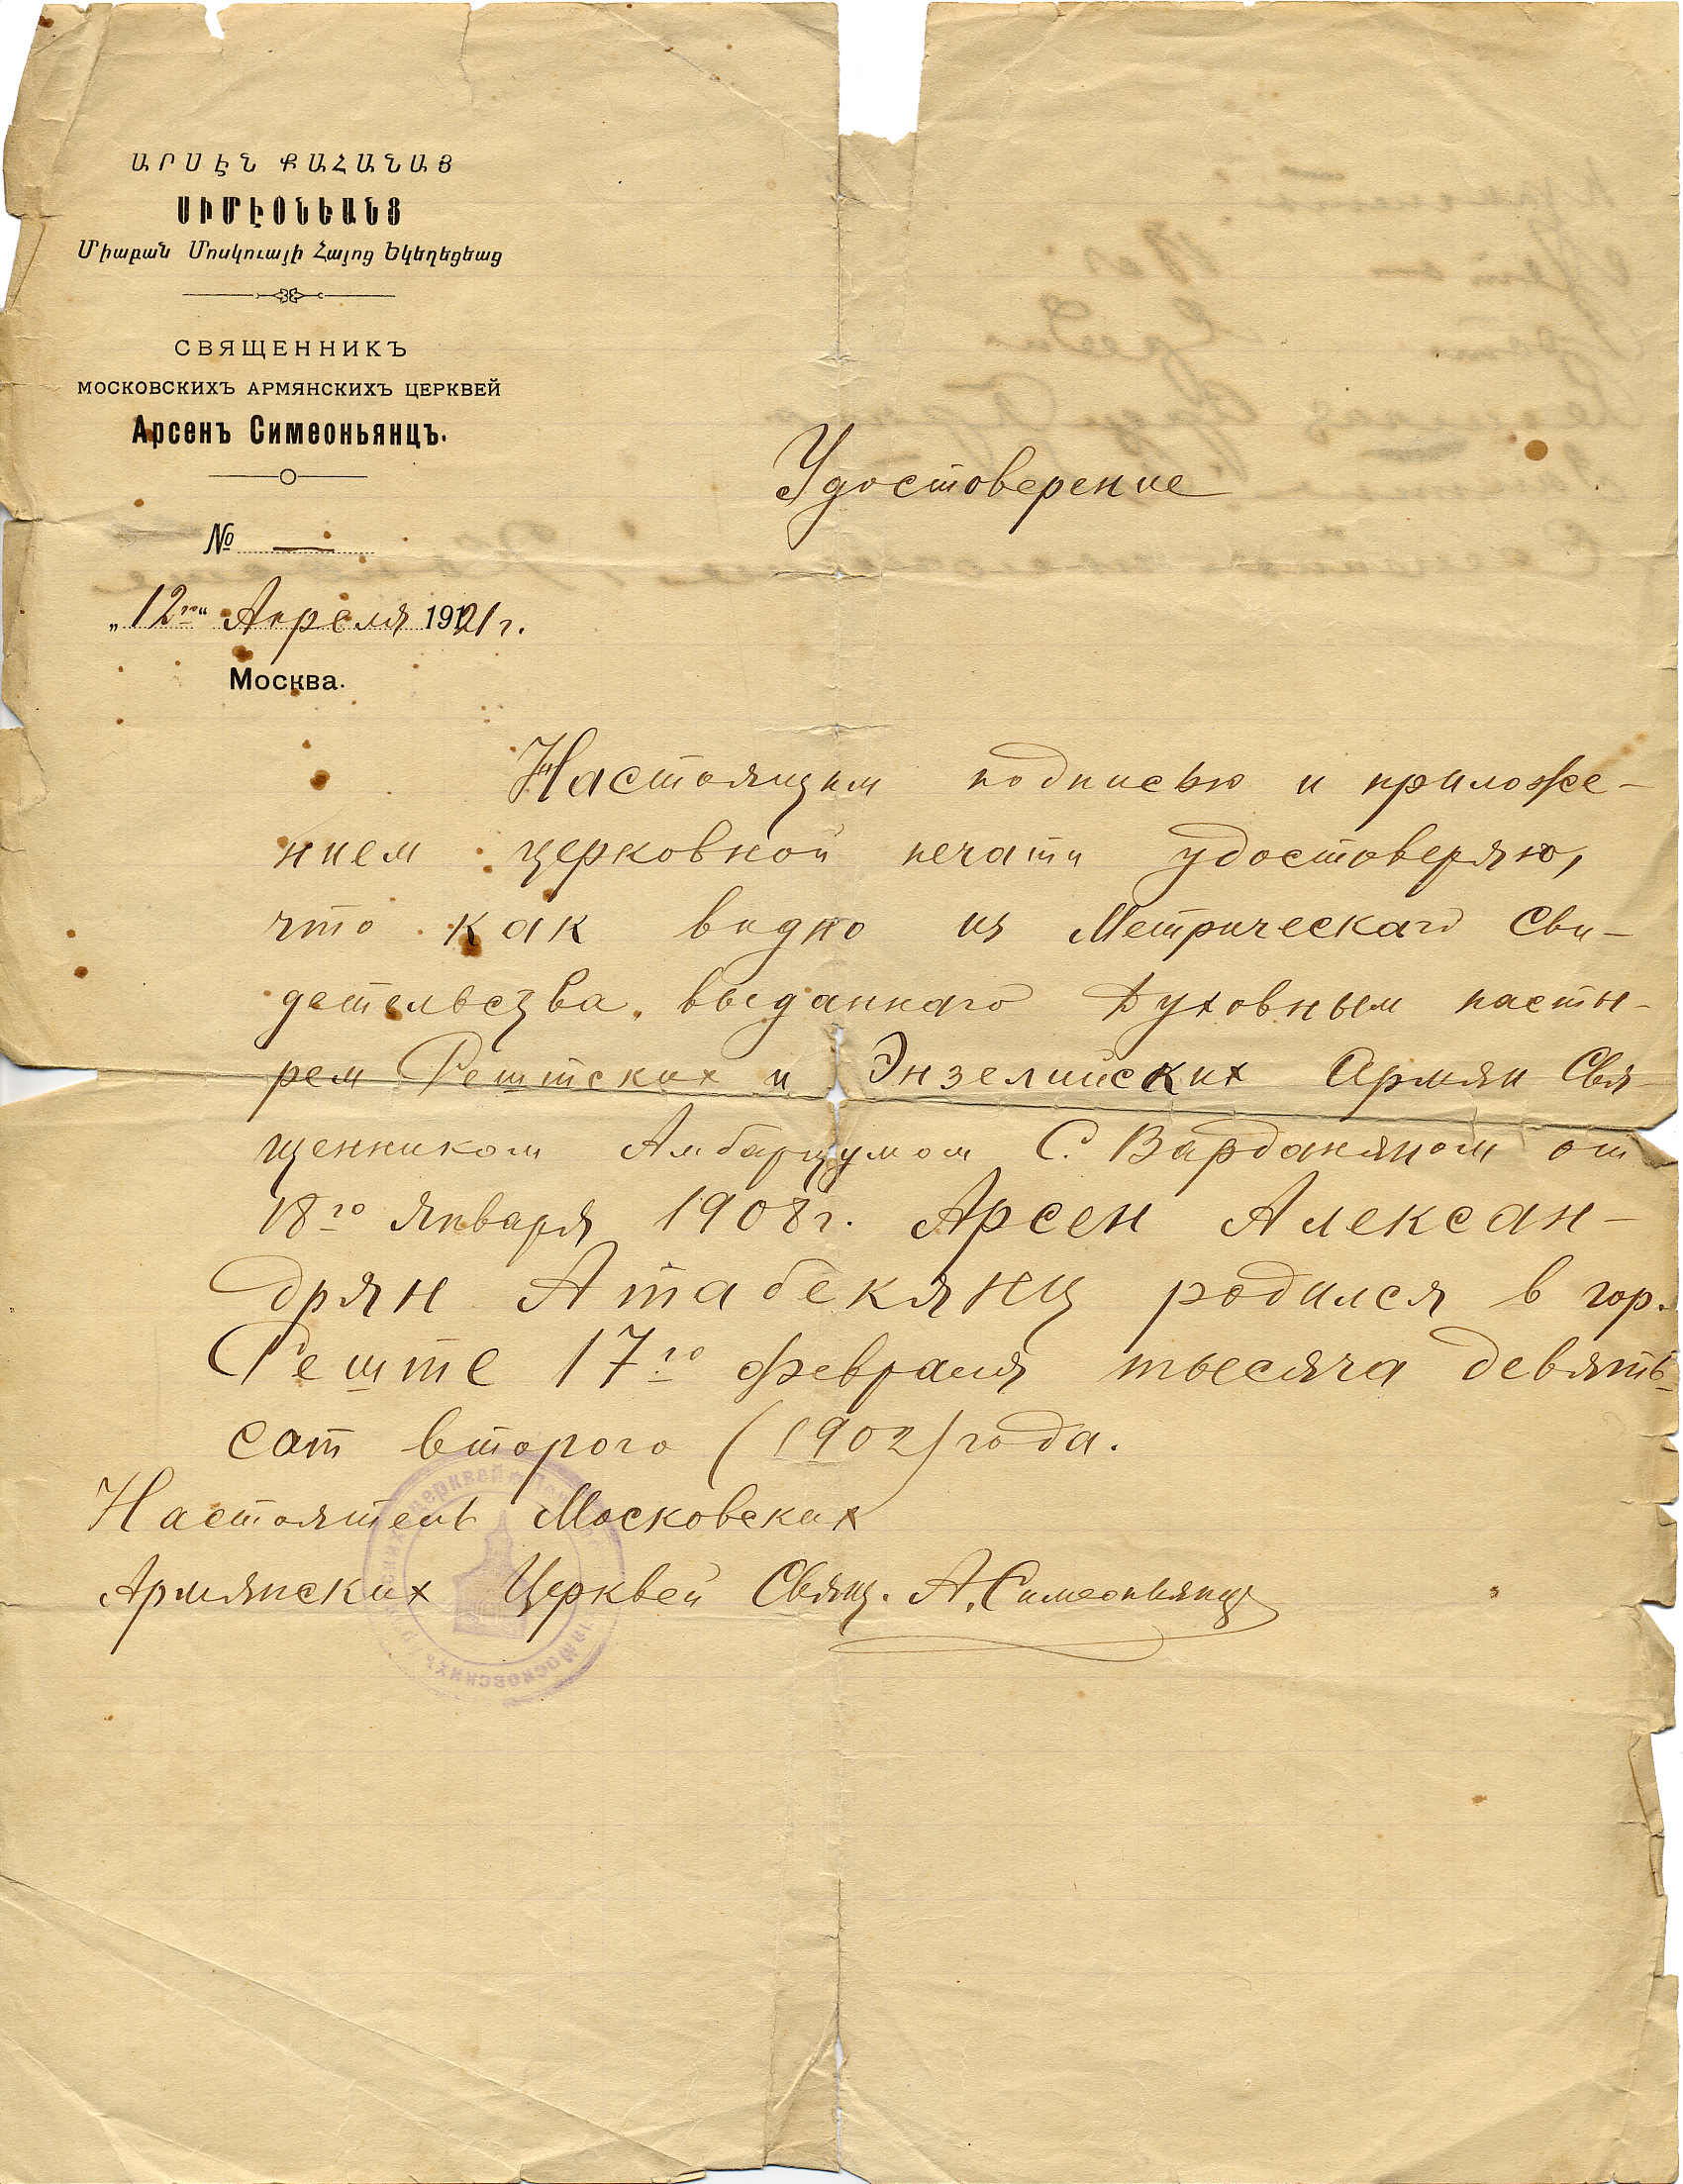 ԱՐՍԷՆ ՔԱՀԱՆԱՅ
ՍԻՄԷՕՆԵԱՆՑ
Միաբան Մոսկուայի Հայոց Եկեղեցեաց
СВЯЩЕННИКЪ
МОСКОВСКИХЪ АРМЯНСКИХЪ ЦЕРКВЕЙ
Арсенъ Симеоньянцъ.
Удостоверение
№ —
„12го“ Апреля 1921 г.
Москва.
Настоящим подписью и приложе-
нием церковной печати удостоверяю,
что как видно из Метрическаго Сви-
детельства, выданнаго Духовным пасты-
рем Рештских и Энзелийских Армян Свя-
щенником Амбарцумом С. Варданяном от
18го января 1908 г. Арсен Алексан-
дрян Атабекянц родился в гор.
Реште 17го февраля тысяча девять-
сот второго (1902) года.
Настоятель Московских
Армянских Церквей Свящ. А. Симеоньянц
церквей
Московскихъ